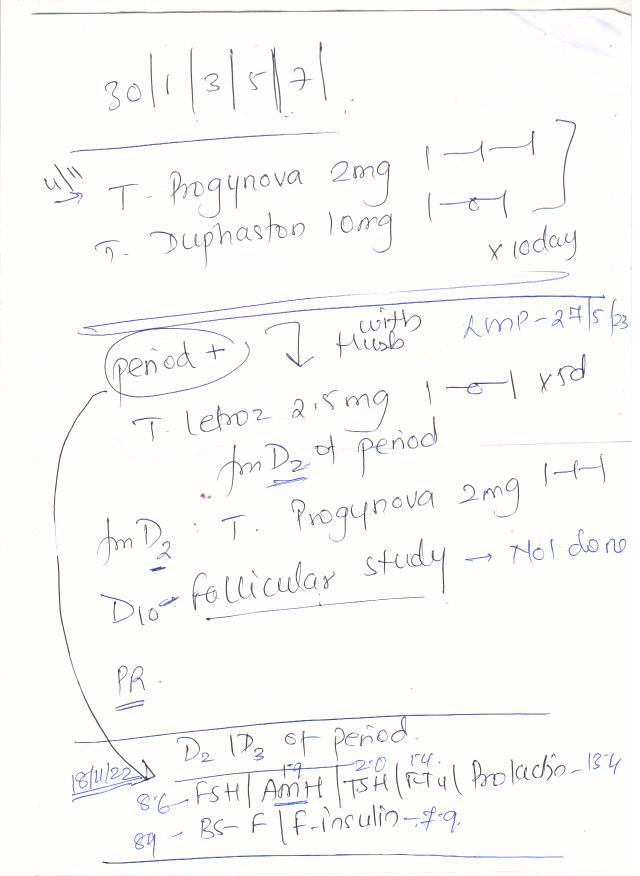 30|1|3|5|7|
T. Progynova 2mg 1-1-1
T. Duphaston 10mg 1-0-1
x 10day
period + with Husb LMP-27/5/23
T. letroz 2.5mg 1-0-1 x5d
fm D2 of period
fm D2 : T. Progynova 2mg 1-1-1
D10- follicular study → Not done
PR.
D2 | D3 of period.
18/11/22
1.9 2.0 1.4.
8.6 - FSH | AMH | TSH | FT4 | Prolactin - 13.4
89 - BS-F | f-insulin - 7.9.